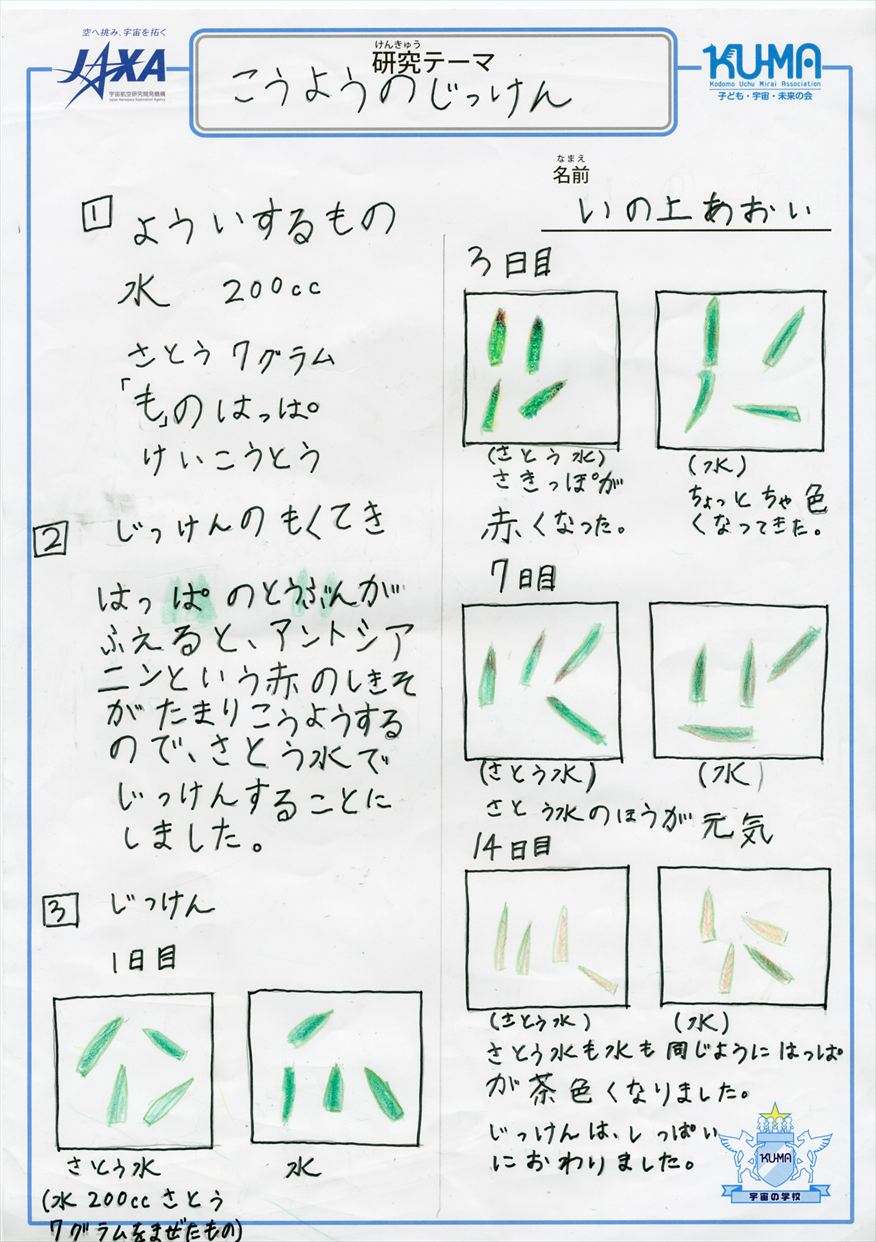 空へ挑み、宇宙を拓く
JAXA
宇宙航空研究開発機構
Japan Aerospace Exploration Agency
けんきゅう
研究テーマ
こうようのじっけん
KU-MA
Kodomo Uchu Mirai Association
子ども・宇宙・未来の会
なまえ
名前
いの上あおい
1 よういするもの
水 200cc
さとう7グラム
「も」のはっぱ
けいこうとう
2 じっけんのもくてき
はっぱのとうぶんが
ふえると、アントシア
ニンという赤のしきそ
がたまりこうようする
ので、さとう水で
じっけんすることに
しました。
3 じっけん
1日目
さとう水
(水200ccさとう
7グラムをまぜたもの)
水
3日目
(さとう水)
さきっぽが
赤くなった。
(水)
ちょっとちゃ色
くなってきた。
7日目
(さとう水)
(水)
さとう水のほうが元気
14日目
(さとう水)
(水)
さとう水も水も同じようにはっぱ
が茶色くなりました。
じっけんは、しっぱい
におわりました。
KU-MA
宇宙の学校